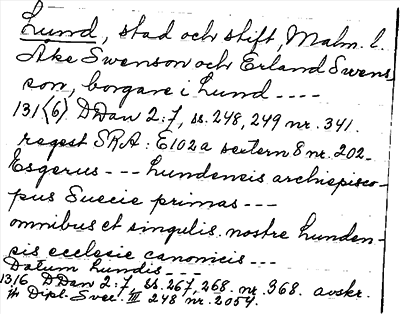 Lund, stad och stift, Malm. l.
Åke Swenson och Erland Swens-
son, borgare i Lund ----
131<6> DDan 2:7, ss. 248, 249 nr. 341.
regest SRA: E102a sextern 8 nr. 202-
Esgerus --- lundensis archiepisco-
pus Suecie primas ---
omnibus et singulis nostre lunden-
sis ecclesie canonicis ---
Datum lundis ---
1316 DDan 2:7, ss. 267, 268. nr. 368. avskr.
Dipl. Svec. III 248 nr. 2054.